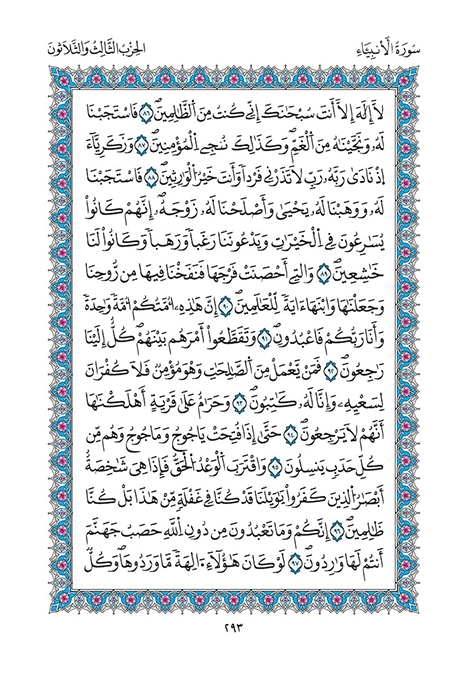 سُورَةُ الْأَنبِيَاءِ
الحِزْبُ الثَّالِثُ وَالثَّلَاثُونَ
لَّا إِلَٰهَ إِلَّا أَنتَ سُبْحَٰنَكَ إِنِّي كُنتُ مِنَ اَلظَّٰلِمِينَ ٨٦ فَاسْتَجَبْنَا
لَهُۥ وَنَجَّيْنَٰهُ مِنَ اَلْغَمِّ وَكَذَٰلِكَ نُنجِي اِلْمُؤْمِنِينَ ٨٧ وَزَكَرِيَّآءَ
اِذْ نَادَىٰ رَبَّهُۥ رَبِّ لَا تَذَرْنِي فَرْداً وَأَنتَ خَيْرُ اُلْوَٰرِثِينَ ٨٨ فَاسْتَجَبْنَا
لَهُۥ وَوَهَبْنَا لَهُۥ يَحْيَىٰ وَأَصْلَحْنَا لَهُۥ زَوْجَهُۥ إِنَّهُمْ كَانُواْ
يُسَٰرِعُونَ فِي اِلْخَيْرَٰتِ وَيَدْعُونَنَا رَغَباً وَرَهَباً وَكَانُواْ لَنَا
خَٰشِعِينَ ٨٩ وَالتِي أَحْصَنَتْ فَرْجَهَا فَنَفَخْنَا فِيهَا مِن رُّوحِنَا
وَجَعَلْنَٰهَا وَابْنَهَا ءَايَةً لِّلْعَٰلَمِينَ ٩٠ إِنَّ هَٰذِهِۦ أُمَّتُكُمُ أُمَّةً وَٰحِدَةً
وَأَنَا رَبُّكُمْ فَاعْبُدُونِ ٩١ وَتَقَطَّعُواْ أَمْرَهُم بَيْنَهُمْ كُلٌّ اِلَيْنَا
رَٰجِعُونَ ٩٢ فَمَنْ يَّعْمَلْ مِنَ اَلصَّٰلِحَٰتِ وَهُوَ مُؤْمِنٌ فَلَا كُفْرَانَ
لِسَعْيِهِۦ وَإِنَّا لَهُۥ كَٰتِبُونَ ٩٣ وَحَرَٰمٌ عَلَىٰ قَرْيَةٍ اَهْلَكْنَٰهَا
أَنَّهُمْ لَا يَرْجِعُونَ ٩٤ حَتَّىٰ إِذَا فُتِحَتْ يَاجُوجُ وَمَاجُوجُ وَهُم مِّن
كُلِّ حَدَبٍ يَنسِلُونَ ٩٥ وَاقْتَرَبَ اَلْوَعْدُ اُلْحَقُّ فَإِذَا هِيَ شَٰخِصَةٌ
اَبْصَٰرُ اُلذِينَ كَفَرُواْ يَٰوَيْلَنَا قَدْ كُنَّا فِي غَفْلَةٍ مِّنْ هَٰذَا بَلْ كُنَّا
ظَٰلِمِينَ ٩٦ إِنَّكُمْ وَمَا تَعْبُدُونَ مِن دُونِ اِللَّهِ حَصَبُ جَهَنَّمَ
أَنتُمْ لَهَا وَٰرِدُونَ ٩٧ لَوْ كَانَ هَٰؤُلَآءِ ءَالِهَةً مَّا وَرَدُوهَا وَكُلٌّ
٢٩٣